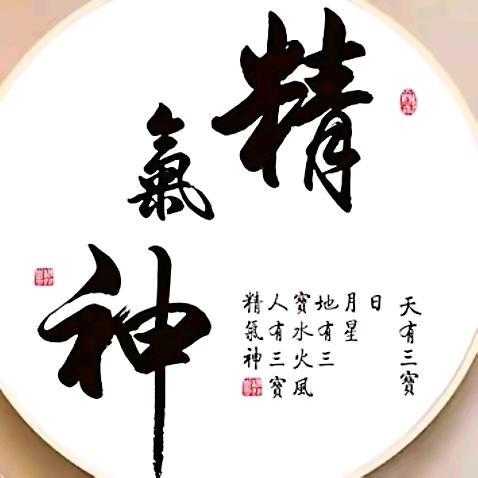 精
氣
神
天有三寶
日
月星
地有三
寶水火風
人有三寶
精氣神